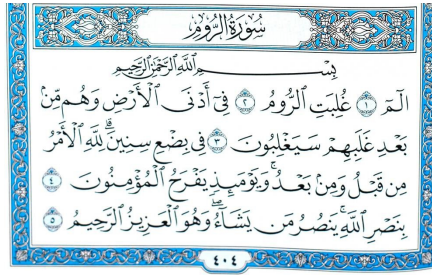 سُورَةُ الرُّومِ
بِسْمِ اللَّهِ الرَّحْمَٰنِ الرَّحِيمِ
الٓمٓ ١ غُلِبَتِ الرُّومُ ٢ فِيٓ أَدْنَى الْأَرْضِ وَهُم مِّنۢ
بَعْدِ غَلَبِهِمْ سَيَغْلِبُونَ ٣ فِي بِضْعِ سِنِينَۗ لِلَّهِ الْأَمْرُ
مِن قَبْلُ وَمِنۢ بَعْدُۚ وَيَوْمَئِذٍ يَفْرَحُ الْمُؤْمِنُونَ ٤
بِنَصْرِ اللَّهِۚ يَنصُرُ مَن يَشَآءُۖ وَهُوَ الْعَزِيزُ الرَّحِيمُ ٥
٤٠٤